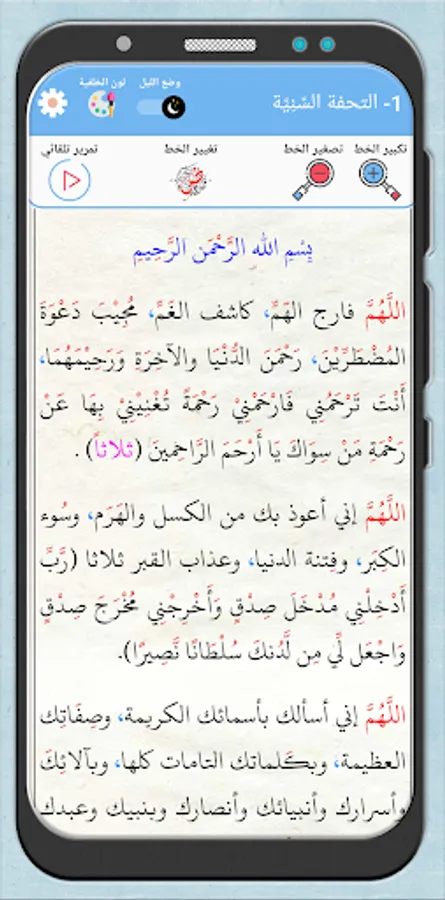 1- التحفة السَّنِيَّة
وضع الليل
لون الخلفية
تكبير الخط
تصغير الخط
تغيير الخط
تمرير تلقائي
بِسْمِ الله الرَّحْمَن الرَّحِيمِ
اللَّهُمَّ فارج الهَمِّ، كاشف الغَمِّ، مُجِيْبَ دَعْوَةَ
المُضْطَرِّيْنَ، رَحْمَنَ الدُّنْيَا وَالآخِرَةِ وَرَحِيْمَهُمَا،
أَنْتَ تَرْحَمُنِي فَارْحَمْنِيْ رَحْمَةً تُغْنِيْنِيْ بِهَا عَنْ
رَحْمَةِ مَنْ سِوَاكَ يَا أَرْحَمَ الرَّاحِمِينَ (ثلاثاً) .
اللَّهُمَّ إني أعوذ بك من الكسل والهَرَم، وسُوء
الكِبَر، وفتنة الدنيا، وعذاب القبر ثلاثا (رَّبِّ
أَدْخِلْنِي مُدْخَلَ صِدْقٍ وَأَخْرِجْنِي مُخْرَجَ صِدْقٍ
وَاجْعَل لِّي مِن لَّدُنكَ سُلْطَانًا نَّصِيرًا).
اللَّهُمَّ إني أسألك بأسمائك الكريمة، وصِفَاتِك
العظيمة، وبكَلماتك التامات كلها، وبآلائِكَ
وأسرارك وأنبيائك وأنصارك وبنبيك وعبدك